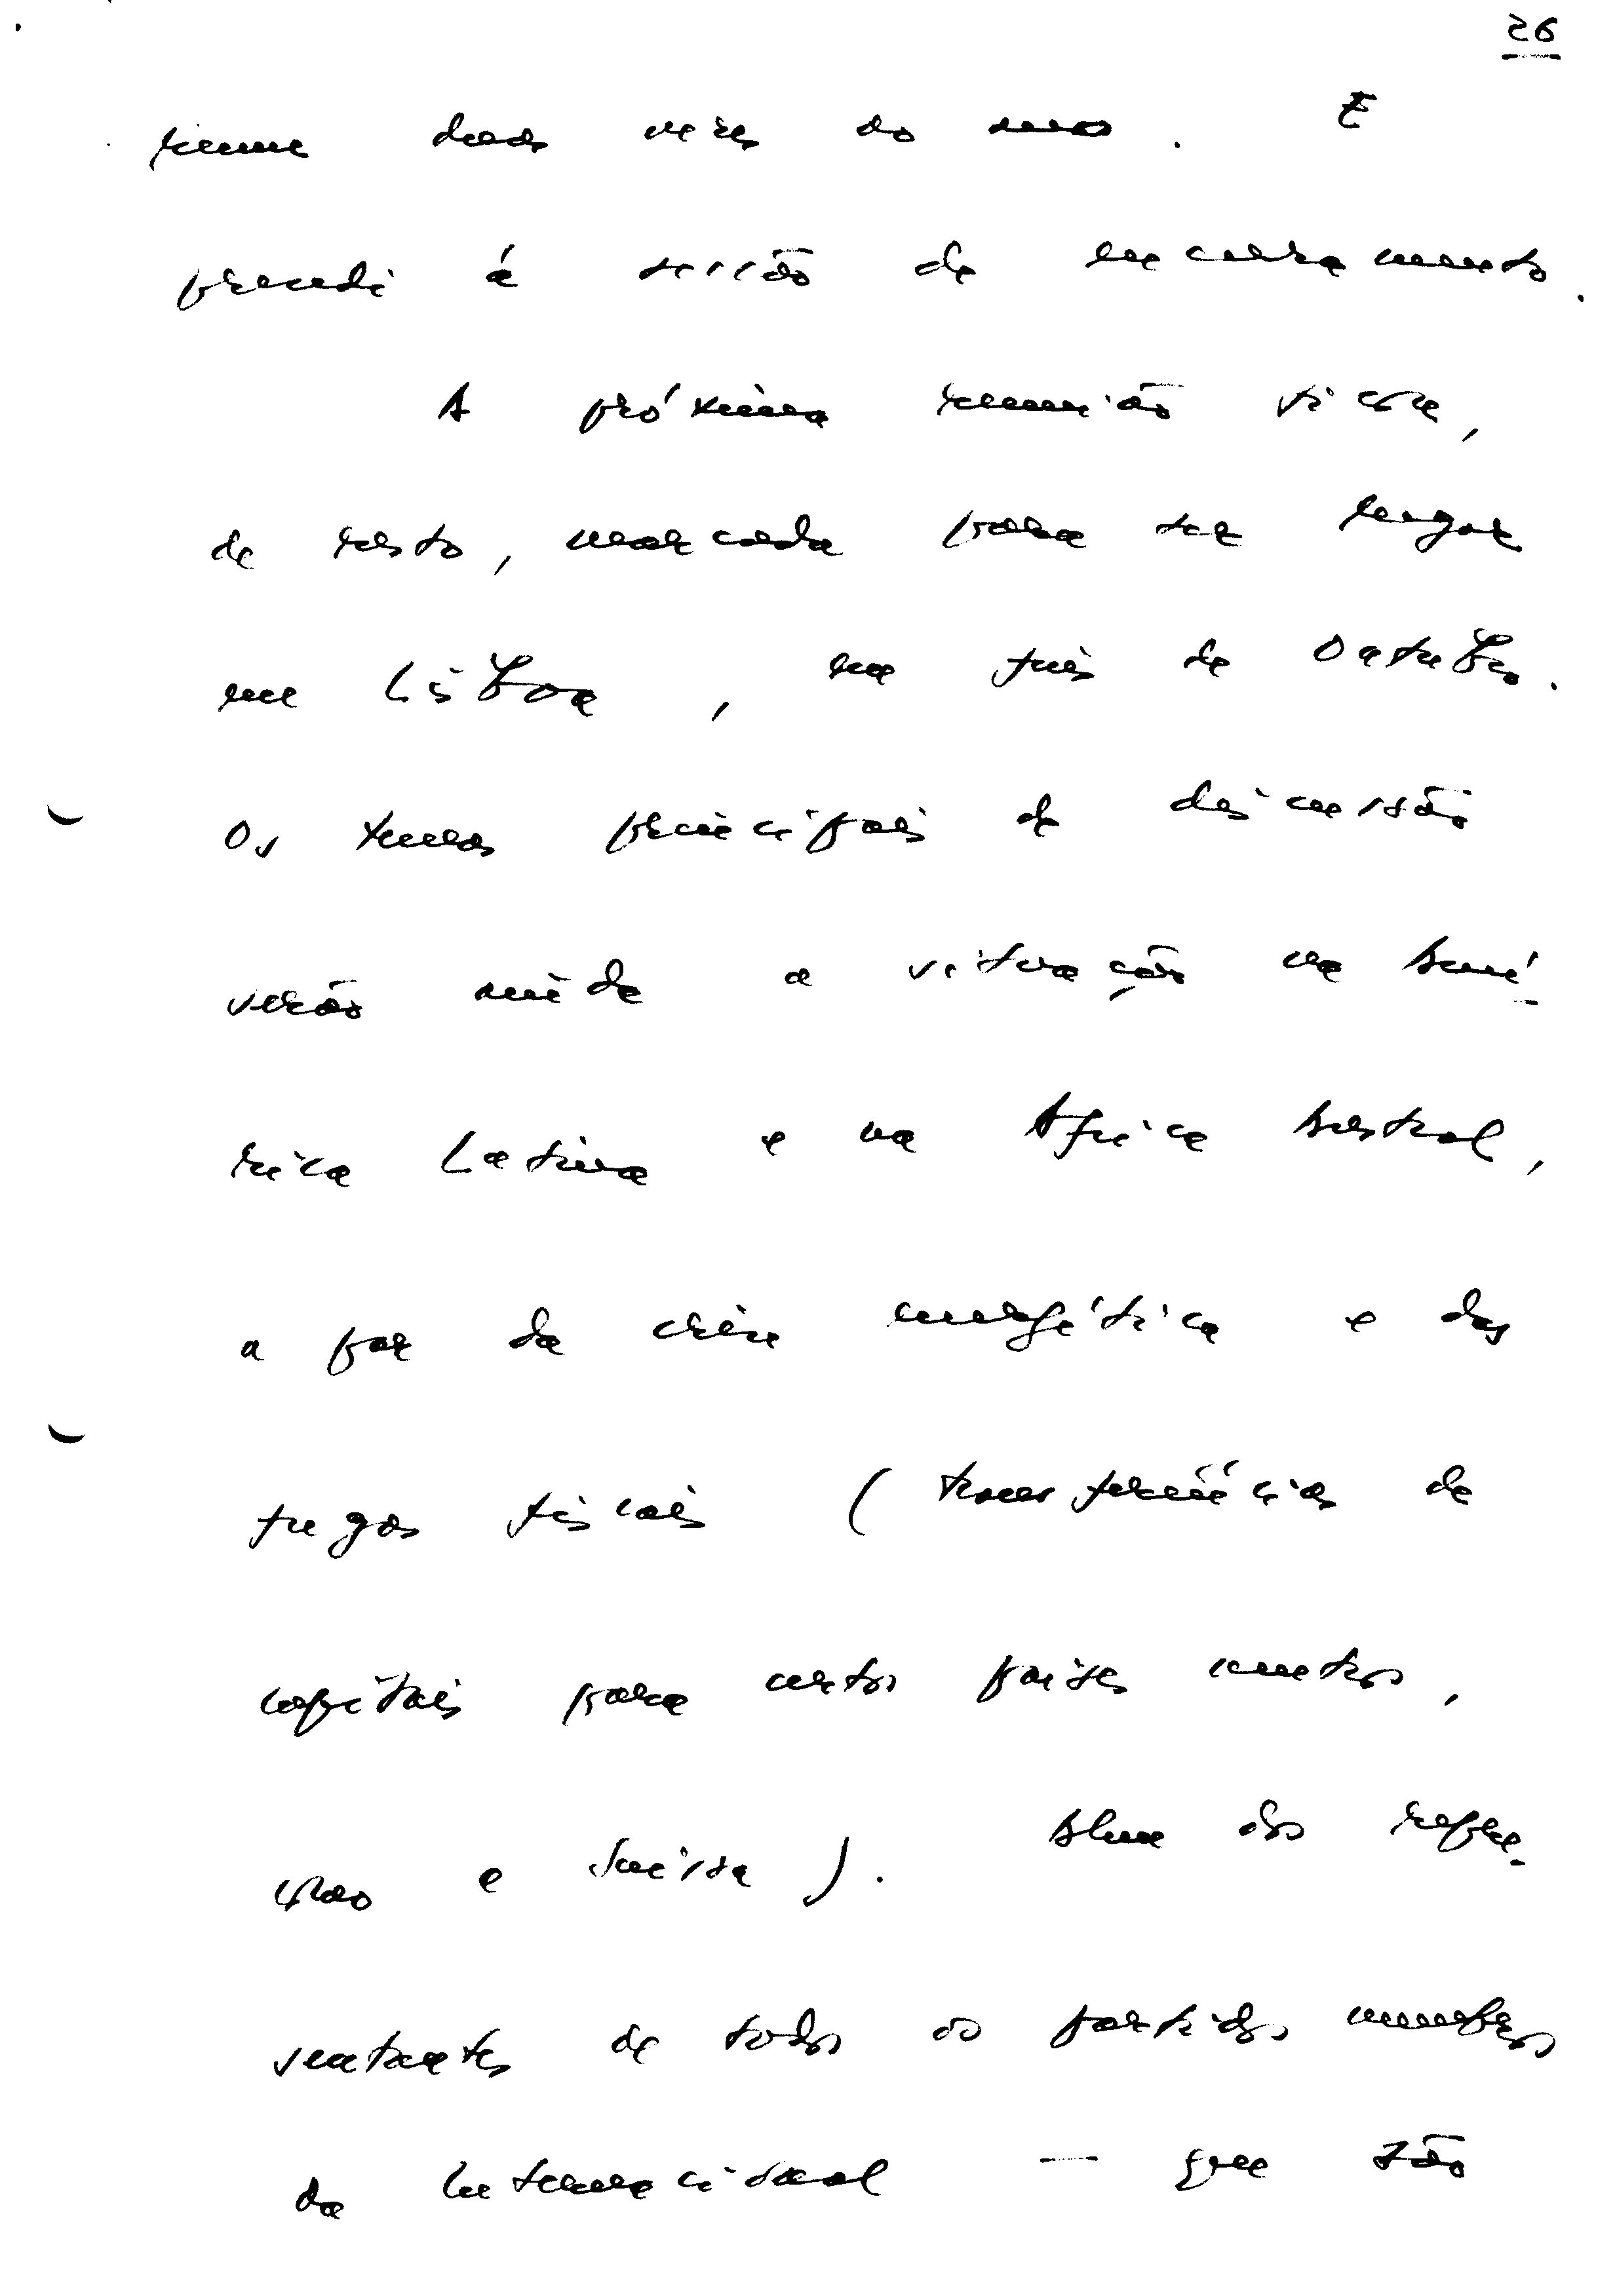 26
reune duas vezes ao ano. E
precedi à sessão de encerramento.
A próxima reunião ficou,
de resto, marcada para ter lugar
em Lisboa, em fins de Outubro.
Os temas principais de discussão
serão ainda a situação na Amé-
rica Latina e na África Austral,
a par da crise energética e das
fugas fiscais (transferências de
capitais para certos países neutros,
e Suíssa). Alem dos repre-
sentantes de todos os partidos membros
da Internacional — que são